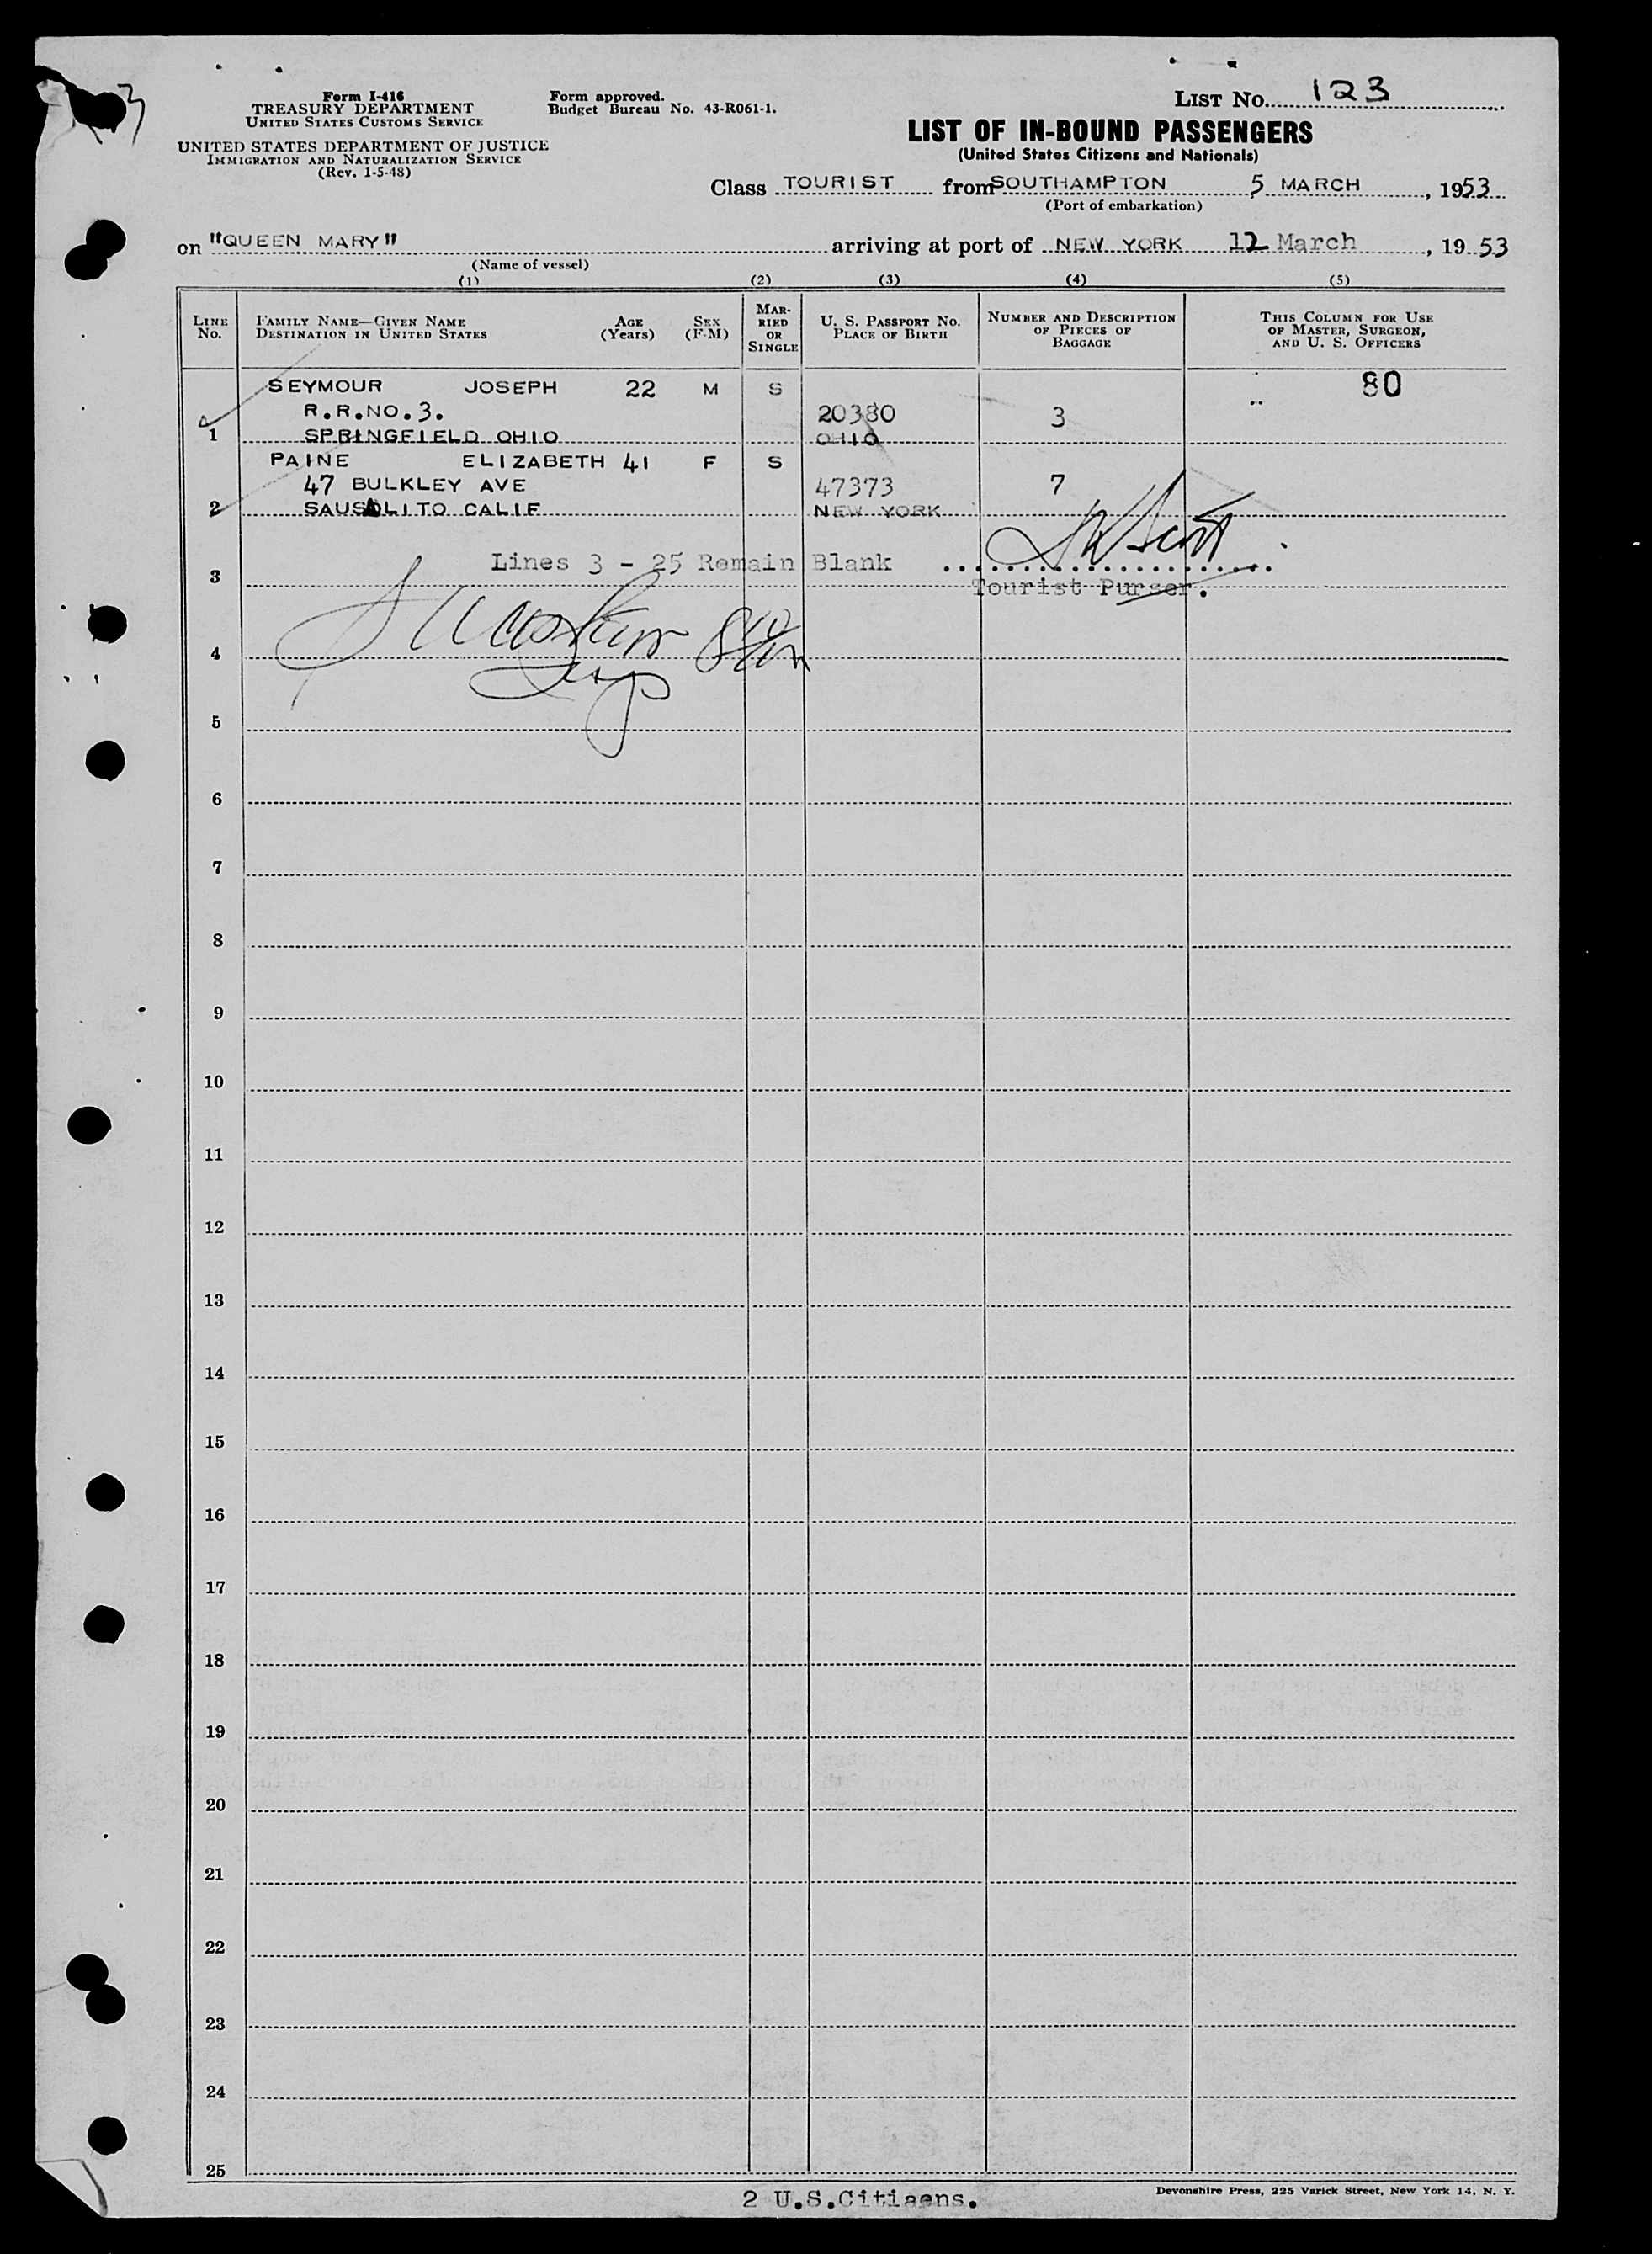 Form I-416
TREASURY DEPARTMENT
UNITED STATES CUSTOMS SERVICE
UNITED STATES DEPARTMENT OF JUSTICE
IMMIGRATION AND NATURALIZATION SERVICE
(Rev. 1-5-48)
Form approved.
Budget Bureau No. 43-R061-1.
LIST No. 123
LIST OF IN-BOUND PASSENGERS
(United States Citizens and Nationals)
Class TOURIST from SOUTHAMPTON 5 MARCH, 1953
(Port of embarkation)
on "QUEEN MARY" arriving at port of NEW YORK 12 March, 1953
(Name of vessel)
(1) (2) (3) (4) (5)
LINE No.
FAMILY NAME—GIVEN NAME
DESTINATION IN UNITED STATES
AGE (Years)
SEX (F-M)
MARRIED OR SINGLE
U. S. PASSPORT No.
PLACE OF BIRTH
NUMBER AND DESCRIPTION OF PIECES OF BAGGAGE
THIS COLUMN FOR USE OF MASTER, SURGEON, AND U. S. OFFICERS
SEYMOUR JOSEPH 22 M S 80
R.R.NO.3. 20380 3
1 SPRINGFIELD OHIO OHIO
PAINE ELIZABETH 41 F S
47 BULKLEY AVE 47373 7
2 SAUSALITO CALIF NEW YORK
Lines 3 - 25 Remain Blank
3 Tourist Purser.
4
5
6
7
8
9
10
11
12
13
14
15
16
17
18
19
20
21
22
23
24
25
2 U.S.Citizens.
Devonshire Press, 225 Varick Street, New York 14, N. Y.